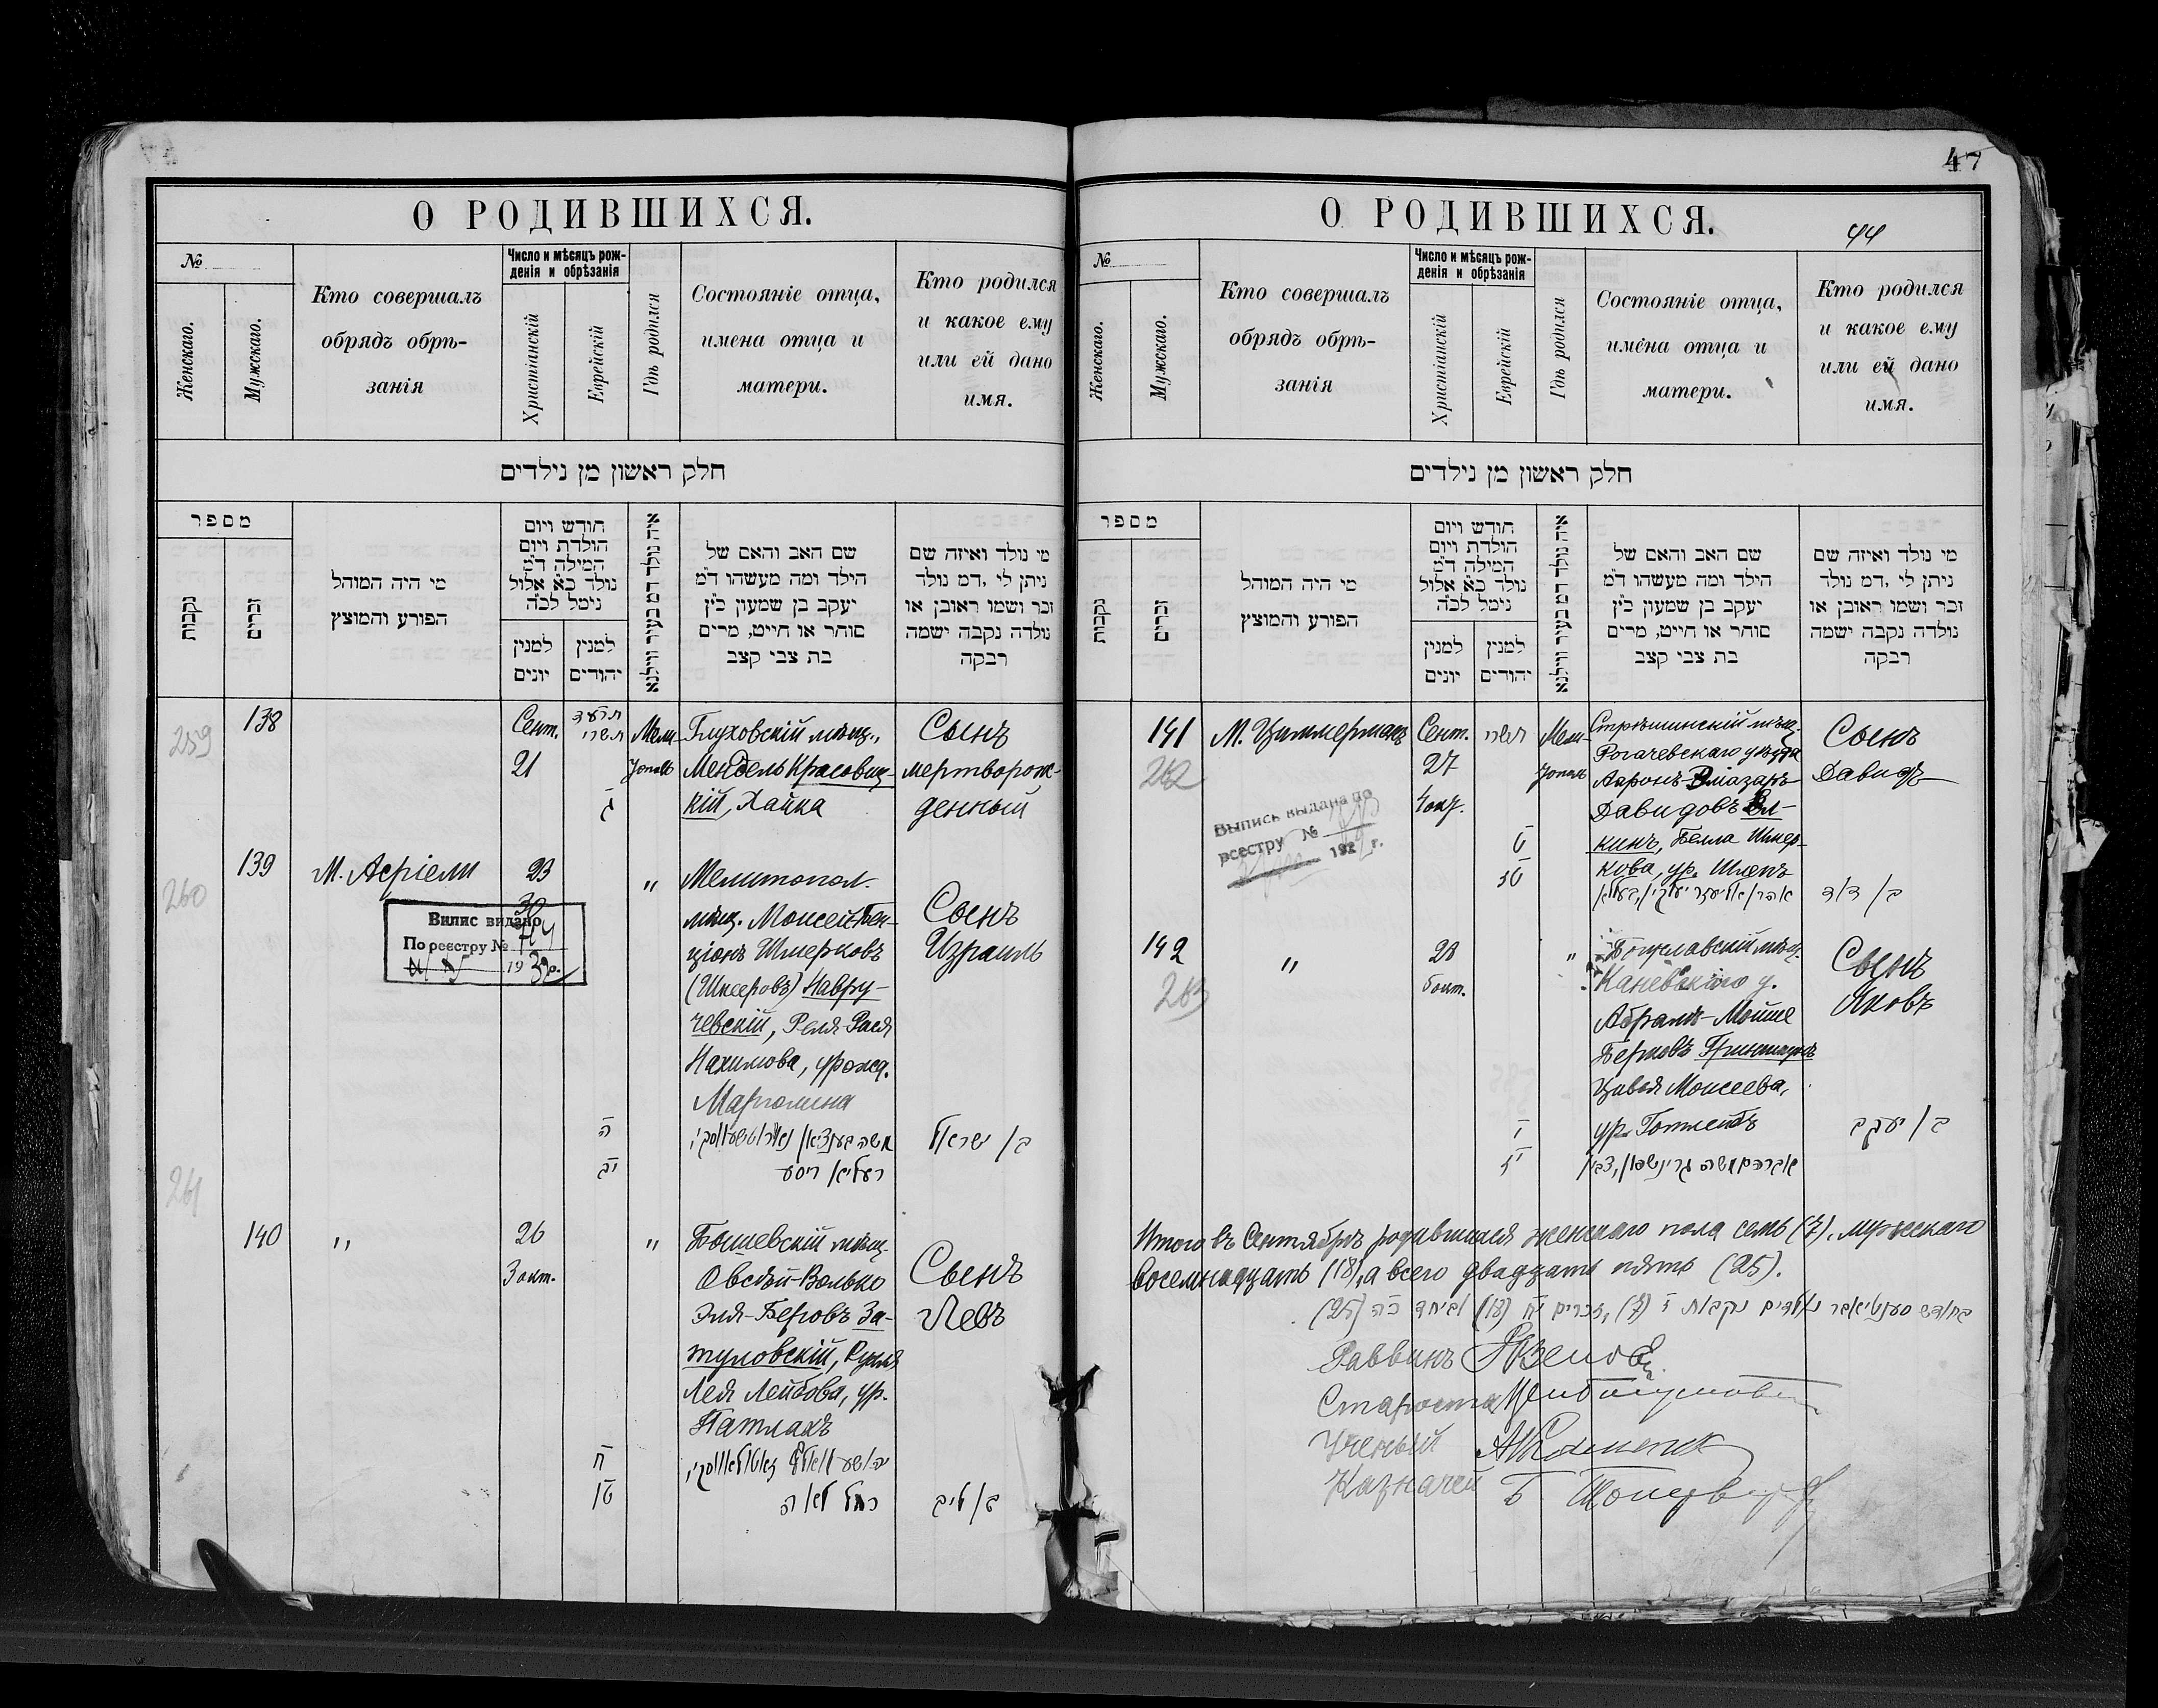 О РОДИВШИХСЯ.
№
Женскаго.
Мужскаго.
Кто совершалъ
обрядъ обрѣ-
занія
Число и мѣсяцъ рож-
денія и обрѣзанія
Христіанскій
Еврейскій
Гдѣ родился
Состояніе отца,
имена отца и
матери.
Кто родился
и какое ему
или ей дано
имя.
חלק ראשון מן נילדים
מספר
נקבות
זכרים
מי היה המוהל
הפורע והמוצץ
חודש ויום
הולדת ויום
המילה ד״מ
נולד כ״א אלול
נימל לכ״ה
למנין
יונים
למנין
יהודים
איה נולד דמ בעיר ווילנא
שם האב והאם של
הילד ומה מעשהו ד״מ
יעקב בן שמעון כ״ץ
סוחר או חייט, מרים
בת צבי קצב
מי נולד ואיזה שם
ניתן לי, דמ נולד
זכר ושמו ראובן או
נולדה נקבה ישמה
רבקה
259
138
Сент.
21
תרע״ד
תשרי
ג
Мели-
тополь
Глуховскій мѣщ.,
Мендель Красовиц-
кій, Хайка
Сынъ
мертворож-
денный
260
139
М. Асріели
23
30
Випис видано
По реєстру №
19
"
Мелитопол.
мѣщ. Моисей-Бен-
ціонъ Шмерковъ
Навру-
чевскій, Реля-Рася
Нахимова, урожд.
Марголина
Сынъ
Израиль
ה
יב
בן ישראל
261
140
"
26
3 окт.
"
мѣщ.
Овсѣй-Волько
Эля-Беровъ За-
туловскій, Рухля
Лея Лейбова, ур.
Патлахъ
Сынъ
Левъ
ח
טו
רחל לאה
בן ליב
47
О РОДИВШИХСЯ.
44
№
Женскаго.
Мужскаго.
Кто совершалъ
обрядъ обрѣ-
занія
Число и мѣсяцъ рож-
денія и обрѣзанія
Христіанскій
Еврейскій
Гдѣ родился
Состояніе отца,
имена отца и
матери.
Кто родился
и какое ему
или ей дано
имя.
חלק ראשון מן נילדים
מספר
נקבות
זכרים
מי היה המוהל
הפורע והמוצץ
חודש ויום
הולדת ויום
המילה ד״מ
נולד כ״א אלול
נימל לכ״ה
למנין
יונים
למנין
יהודים
איה נולד דמ בעיר ווילנא
שם האב והאם של
הילד ומה מעשהו ד״מ
יעקב בן שמעון כ״ץ
סוחר או חייט, מרים
בת צבי קצב
מי נולד ואיזה שם
ניתן לי, דמ נולד
זכר ושמו ראובן או
נולדה נקבה ישמה
רבקה
141
262
М. Циммерманъ
Выпись выдана по
реестру №
192 г.
Сент.
27
4 окт.
תשרי
ט
טז
Мели-
тополь
Стрѣшинскій мѣщ.
Рогачевскаго уѣзда
Ааронъ-Элiазаръ
Давидовъ Эл-
кинъ, Белла Шмер-
кова, ур.
Сынъ
Давидъ
בן דוד
142
263
"
28
5 окт.
"
Богуславскій мѣщ.
Каневскаго у.
Абрамъ-Мойше
Берковъ
Цивья Моисеева,
ур. Готлибъ
Сынъ
Яковъ
י
יז
בן יעקב
Итого въ Сентябрѣ родившихся женскаго пола семь (7), мужскаго
восемнадцать (18), а всего двадцать пять (25).
בחודש סענטיאבר נולדים נקבות ז (7), זכרים י״ח (18) וביחד כ״ה (25).
Раввинъ
Староста
Ученый
Казначей